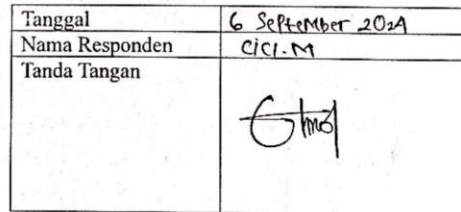 Tanggal 6 September 2024
Nama Responden CiCi.M
Tanda Tangan